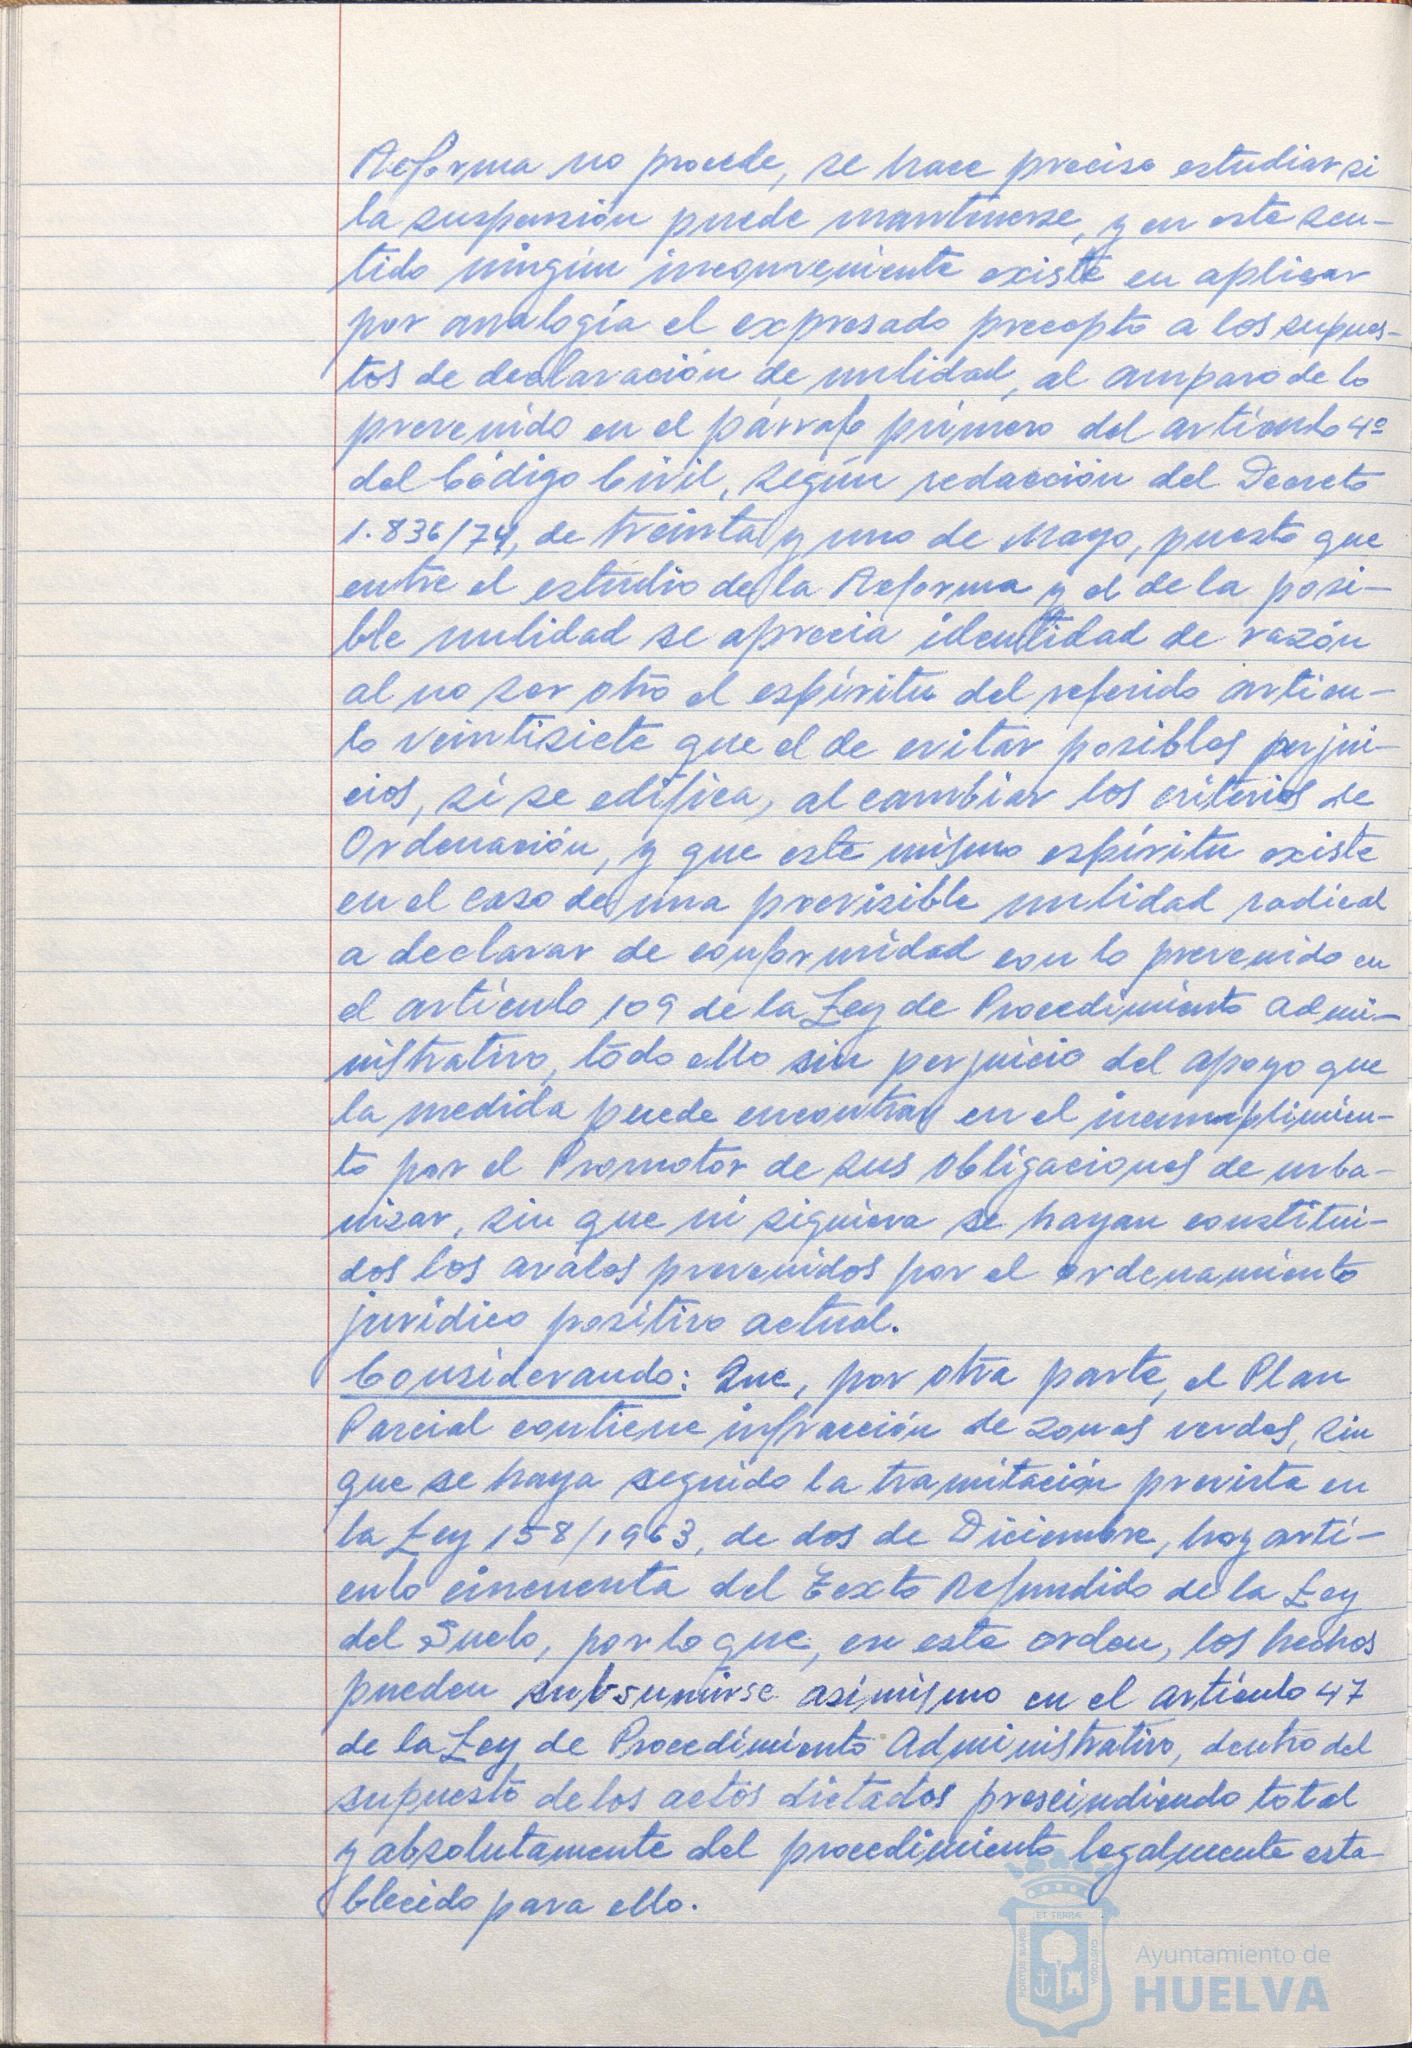 Reforma no procede, se hace preciso estudiar si
la suspensión puede mantenerse, y en este sen-
tido ningún inconveniente existe en aplicar
por analogía el expresado precepto a los supues-
tos de declaración de nulidad, al amparo de lo
prevenido en el párrafo primero del artículo 4º
del Código Civil, según redacción del Decreto
1.836/74, de treinta y uno de Mayo, puesto que
entre el estudio de la Reforma y el de la posi-
ble nulidad se aprecia identidad de razón
al no ser otro el espíritu del referido artícu-
lo veintisiete que el de evitar posibles perjui-
cios, si se edifica, al cambiar los criterios de
Ordenación, y que este mismo espíritu existe
en el caso de una previsible nulidad radical
a declarar de conformidad con lo prevenido en
el artículo 109 de la Ley de Procedimiento Admi-
nistrativo, todo ello sin perjuicio del apoyo que
la medida puede encontrar en el incumplimien-
to por el Promotor de sus obligaciones de urba-
nizar, sin que ni siquiera se hayan constitui-
dos los avales prevenidos por el ordenamiento
jurídico positivo actual.
Considerando: Que, por otra parte, el Plan
Parcial contiene infracción de zonas verdes, sin
que se haya seguido la tramitación prevista en
la Ley 158/1963, de dos de Diciembre, hoy artí-
culo cincuenta del Texto Refundido de la Ley
del Suelo, por lo que, en este orden, los hechos
pueden subsumirse asimismo en el artículo 47
de la Ley de Procedimiento Administrativo, dentro del
supuesto de los actos dictados prescindiendo total
y absolutamente del procedimiento legalmente esta-
blecido para ello.
PORTUS MARIS
ET TERRÆ
CUSTODIA
Ayuntamiento de
HUELVA